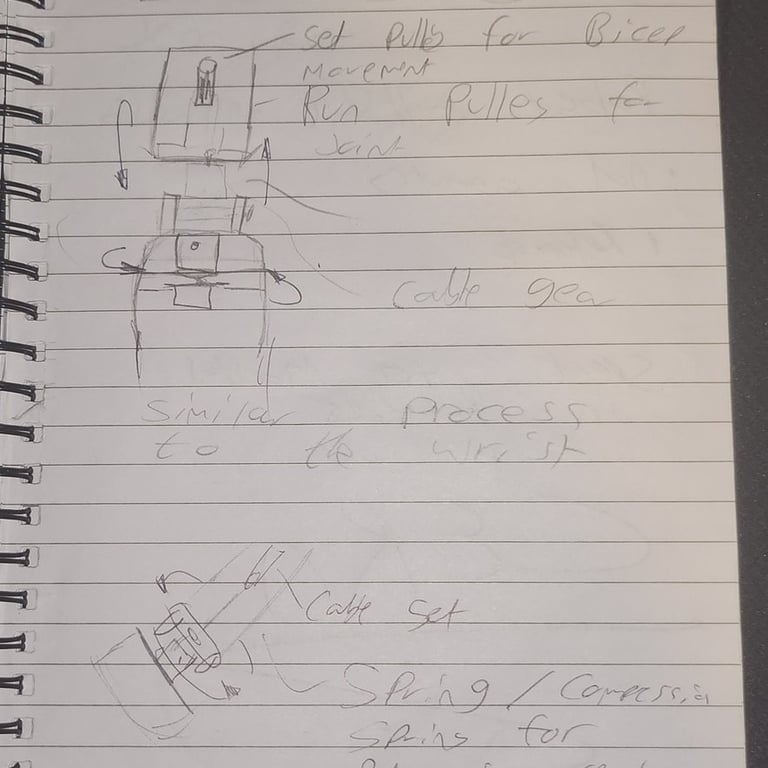 Set Pulls for Bicep
movement
Run Pulles for
Joint
Cable gear
Similar process
to the wrist
Cable set
Spring / Compression
Spring for